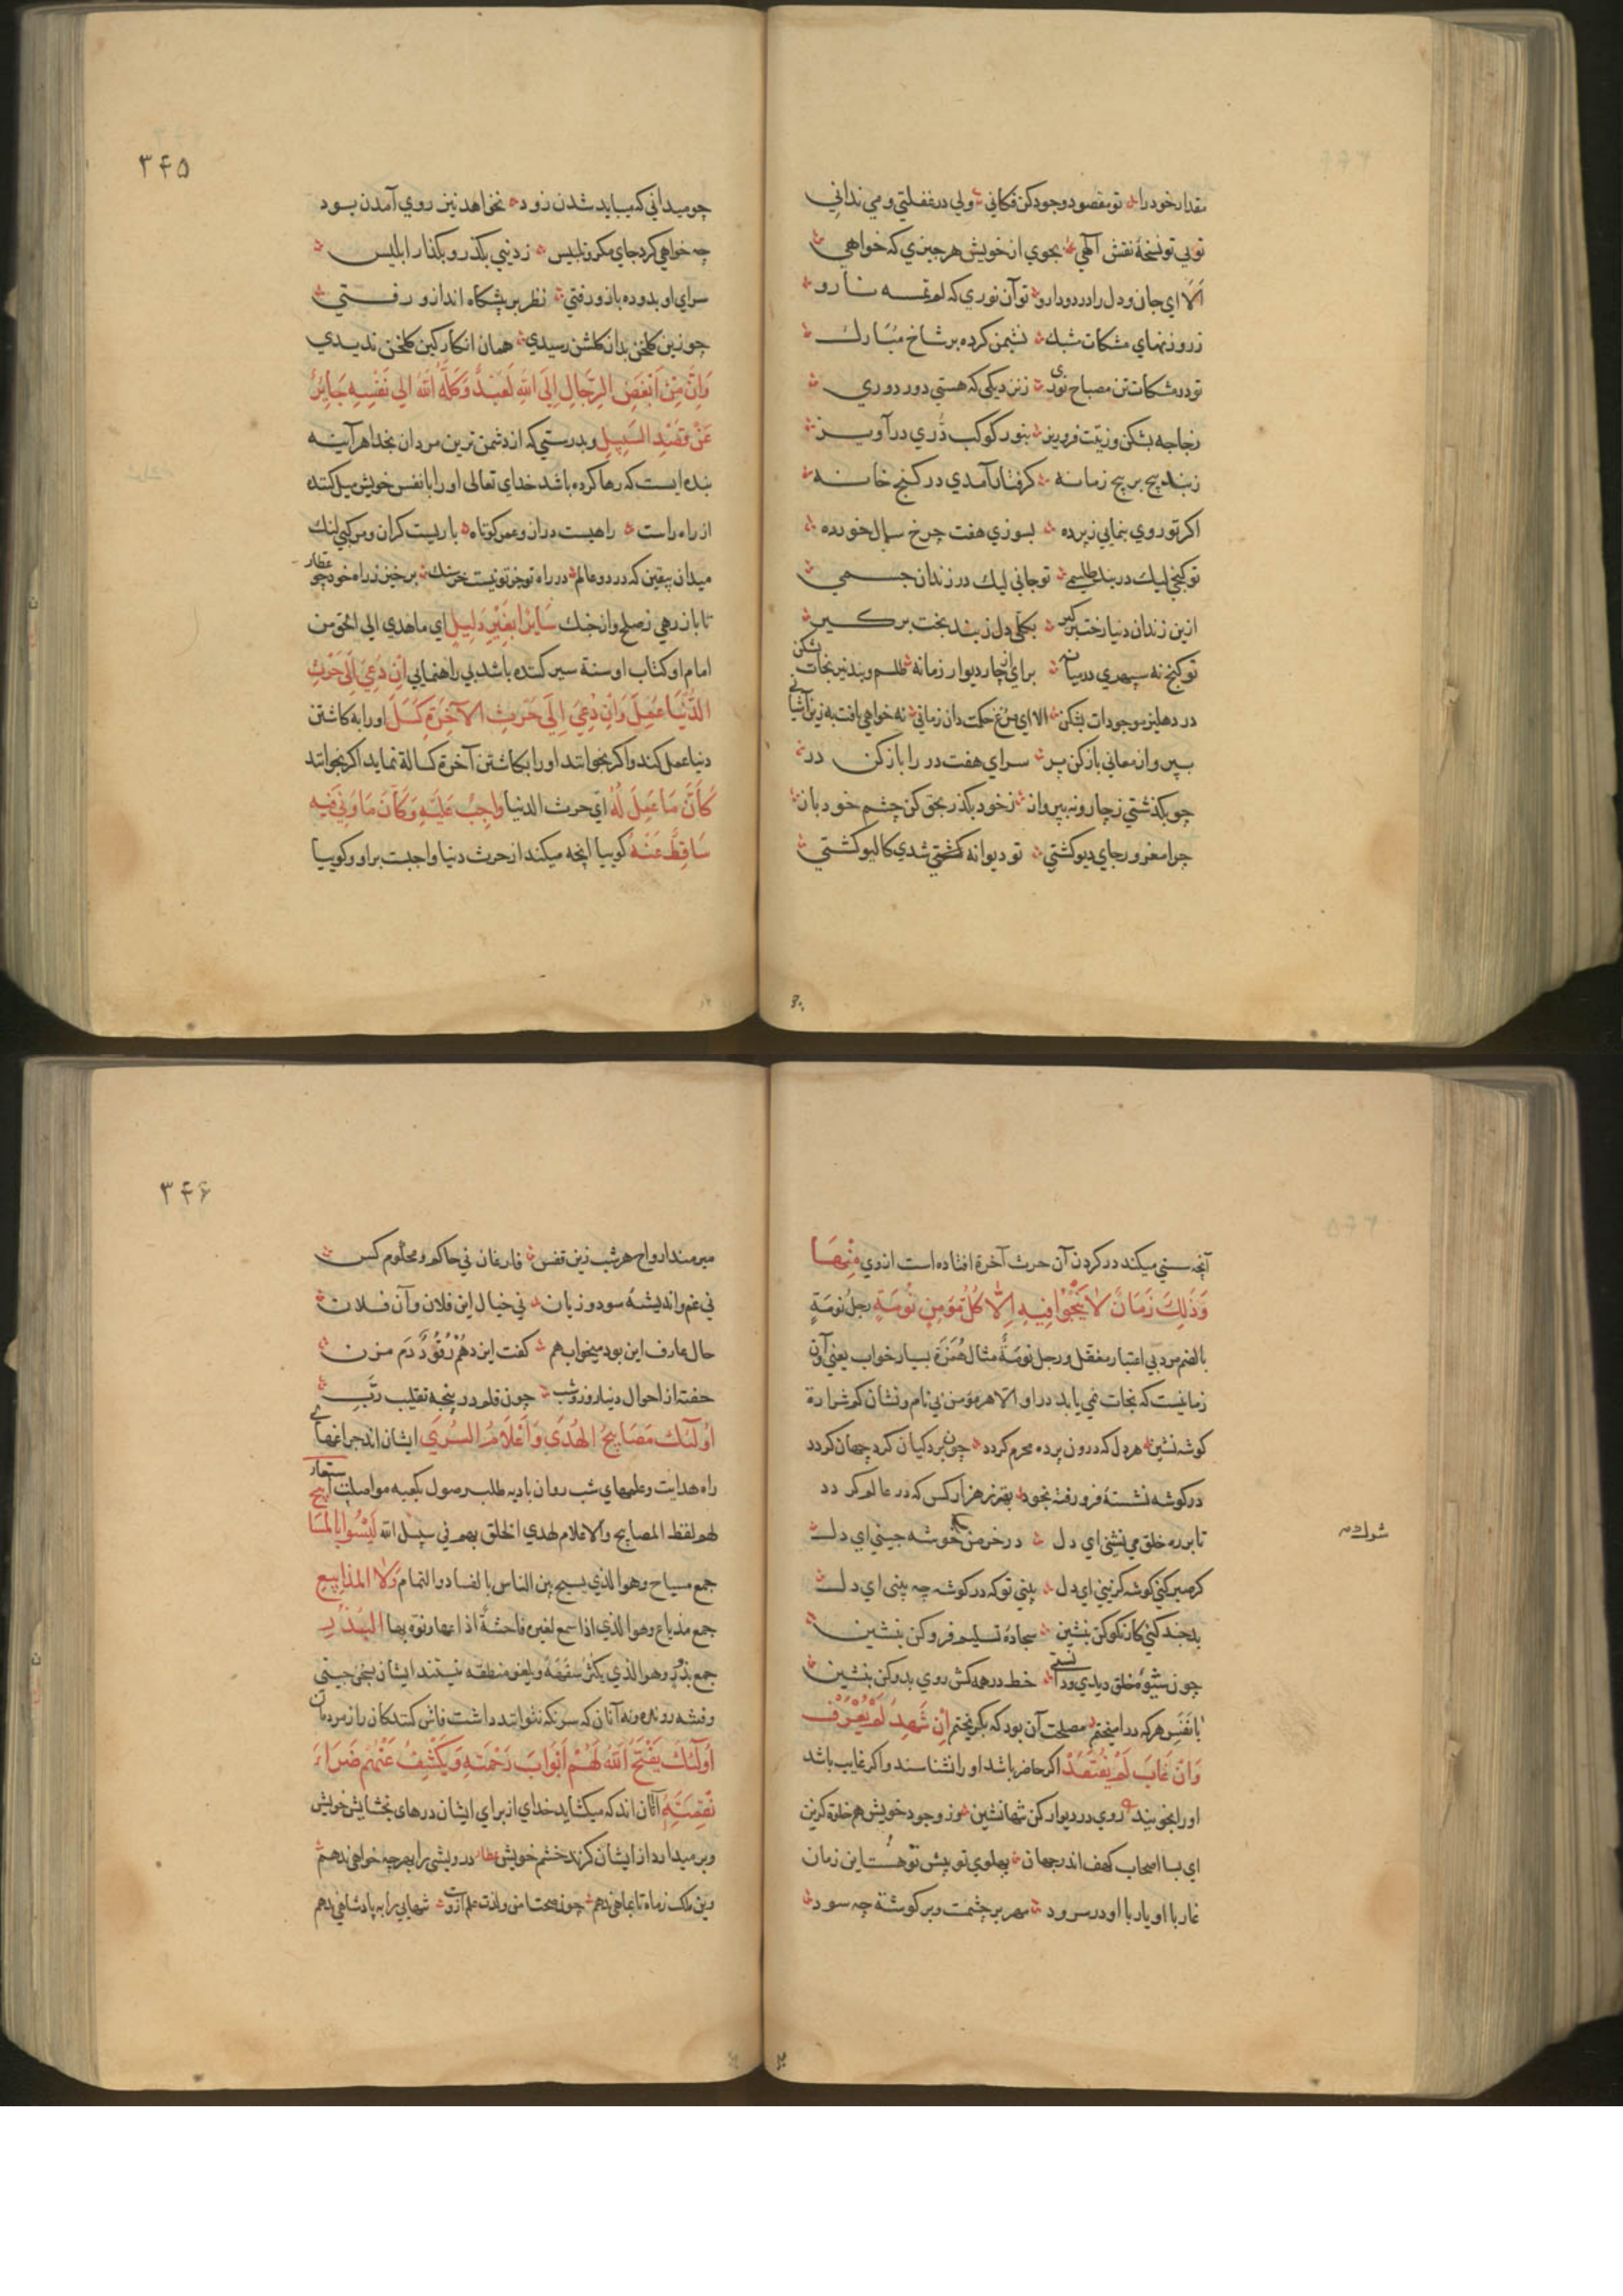 مقدار خود را تو مقصود وجود کن فکانی ولی در غفلتی و می ندانی
تویی تو نسخهٔ نقش الهی بجوی از خویش هر چیزی که خواهی
الا ای جان و دل را درد و دارو تو آن نوری که لم تمسسه نارو
ز روزنهای مشکات شبک نشیمن کرده بر شاخ مبارک
تو در مشکات تن مصباح نوری ز نزدیکی که هستی دور دوری
زجاجه بشکن و زیتت فرو ریز بنور کوکب دری در آویز
ز بند پیچ بر پیچ زمانه گرفتار آمدی در کنج خانه
اکر تو روی بنمایی ز پرده بسوزی هفت چرخ سال خورده
تو کنجی لیک در بند طلسمی تو جانی لیک در زندان جسمی
ازین زندان دنیا رخت برگیر بکلی دل ز بند بخت برگیر
تو کنج نه سپهری در میانه برای چار دیوار زمانه طلسم و بند نیرنجات بشکن
در دهلیز موجودات بشکن الا ای مرغ حکمت دان زمانی نه خواهی یافت به زین آشیانی
بپرواز معانی باز کن پر سرای هفت در را باز کن در
چو بگذشتی ز چار و نه بپرواز ز خود بگذر بحق کن چشم خود باز
چرا مغرور جای دیو گشتی تو دیوانه شدی کالیو گشتی
۳۴۵
چو میدانی که بباید شدن زود نخواهد نیز روی آمدن بود
چه خواهی کرد جای مکر و تلبیس ز دنیی بکذر و بکذار ابلیس
سرای او بدو ده باز و رفتی نظر بر پشکاه انداز و رفتی
چو زین کلخن بدان کلشن رسیدی همان انکار کین کلخن ندیدی
وَاِنَّ مِنْ اَبْغَضِ الرِّجَالِ اِلَی اللهِ لَعَبْدٌ وَکَلَهُ اللهُ الی نَفْسِهِ جَایِرٌ
عَنْ قَصْدِ السَّبِیلِ و بدرستی که از دشمن ترین مردان بخدا هر آینه
بنده ایست که رها کرده باشد خدای تعالی او را با نفس خویش میل کننده
از راه راست راهیست دراز و عمر کوتاه باریست کران و مرکبی لنک
عطار
میدان بیقین که در دو عالم در راه تو جز تو نیست خرسنک برخیز ز راه خود چو
تا باز رهی ز صلح و از جنک سَایِرٌ بِغَیْرِ دَلِیلٍ ای ماهدی الی الحق من
امام او کتاب او سنة سیر کننده باشد بی راهنمایی اِنْ دُعِیَ اِلَی حَرْثِ
الدُّنْیَا عَمِلَ وَاِنْ دُعِیَ اِلَی حَرْثِ الآخِرَةِ کَسِلَ او را به کاشتن
دنیا عمل کند و اکر بخوانند او را بکاشتن آخرة کسالة نماید اکر بخوانند
کَاَنَّ مَا عَمِلَ لَهُ ای حرث الدنیا واجِبٌ عَلَیْهِ وَکَاَنَّ مَا وَنَی فِیهِ
سَاقِطٌ عَنْهُ کوییا آنچه میکند از حرث دنیا واجبست بر او و کوییا
آنچه سستی میکند در کردن آن حرث آخرة افتاده است از وی مِنْهَا
وَذٰلِکَ زَمَانٌ لَا یَنْجُوا فِیهِ اِلَّا کُلُّ مُؤمِنٍ نُوْمَةٍ رجل نُومَةٍ
بالضم مرد بی اعتبار مغفل و رجل نُوَمَةٌ مثال هُمَزَة بسیار خواب یعنی و آن
زمانیست که نجات نمی یابد در او الا هر مؤمن بی نام و نشان کم شرارة
کوشه نشین هر دل که درون پرده محرم کردد چون بردکیان کرد جهان کردد
در کوشه نشستهٔ فرو رفته بخود بهتر ز هزار کس که در عالم کردد
تا بر ره خلق می نشینی ای دل در خرمن خوشه چینی ای دل
کر صبر کنی کوشه کزینی ای دل بینی تو که در کوشه چه بینی ای دل
شورك
بد چند کنی کار نکو کن بنشین سجادهٔ تسلیم فرو کن بنشین
چون شیوهٔ خلق دیدی و دانستی خط در همه کش روی بدو کن بنشین
با نَفَسِ هر که در آمیختم مصلحت آن بود که بگریختم اِنْ شَهِدَ لَمْ یُعْرَفْ
وَاِنْ غَابَ لَمْ یُفْتَقَدْ اکر حاضر باشد او را نشناسند و اکر غایب باشد
او را نجویند روی در دیوار کن تنها نشین وز وجود خویش هم خلوة کزین
ای بسا اصحاب کهف اندر جهان پهلوی تو پیش تو هست این زمان
غار با او یار با او در سرود مهر بر چشمت و بر کوشت چه سود
۳۴۶
میرمند ارواح هر شب زین قفس فارغان نی حاکم و محکوم کس
نی غم و اندیشهٔ سود و زیان نی خیال این فلان و آن فلان
حال عارف این بود بیخواب هم کفت ایزد هُمْ رُقُودٌ زَم مزن
خفته از احوال دنیا روز و شب چون قلم در پنجهٔ تقلیب رَبّ
اُولٰئِکَ مَصَابِیحُ الهُدَی وَاَعْلَامُ السُّرَی ایشان اند چراغهای
راه هدایت و علمهای شب روان بادیه طلب وصول بکعبه مواصلت استعار
لهم لفظ المصابیح والاعلام لهدی الخلق بهم فی سبیل الله لَیْسُوا بِالْمَسَایِیحِ
جمع مسیاح و هو الذی یسیح بین الناس بالفساد و النمام وَلَا المَذَایِیعِ
جمع مذیاع و هو الذی اذا سمع لغیره فاحشةً اذاعها و نوه بها البُذُرِ
جمع بذور و هو الذی یکثر سَفَهُهُ و یلغو منطقه نیستند ایشان سخن چینی
و فتنه رونده و نه آنان که سر نکه نتوانند داشت فاش کنندکان راز مردمان
اُولٰئِکَ یَفْتَحُ اللهُ لَهُمْ اَبْوَابَ رَحْمَتِهِ وَیَکْشِفُ عَنْهُمْ ضَرَاءَ
نِقْمَتِهِ آنان اند که میکشاید خدای از برای ایشان درهای بخشایش خویش
و بر میدارد از ایشان کزند خشم خویش عطار درویشی را بهر چه خواهی ندهم
وین ملک ز ماه تا بماهی ندهم چون صحت و امن و لذت علم تنهایی را به پادشاهی ندهم